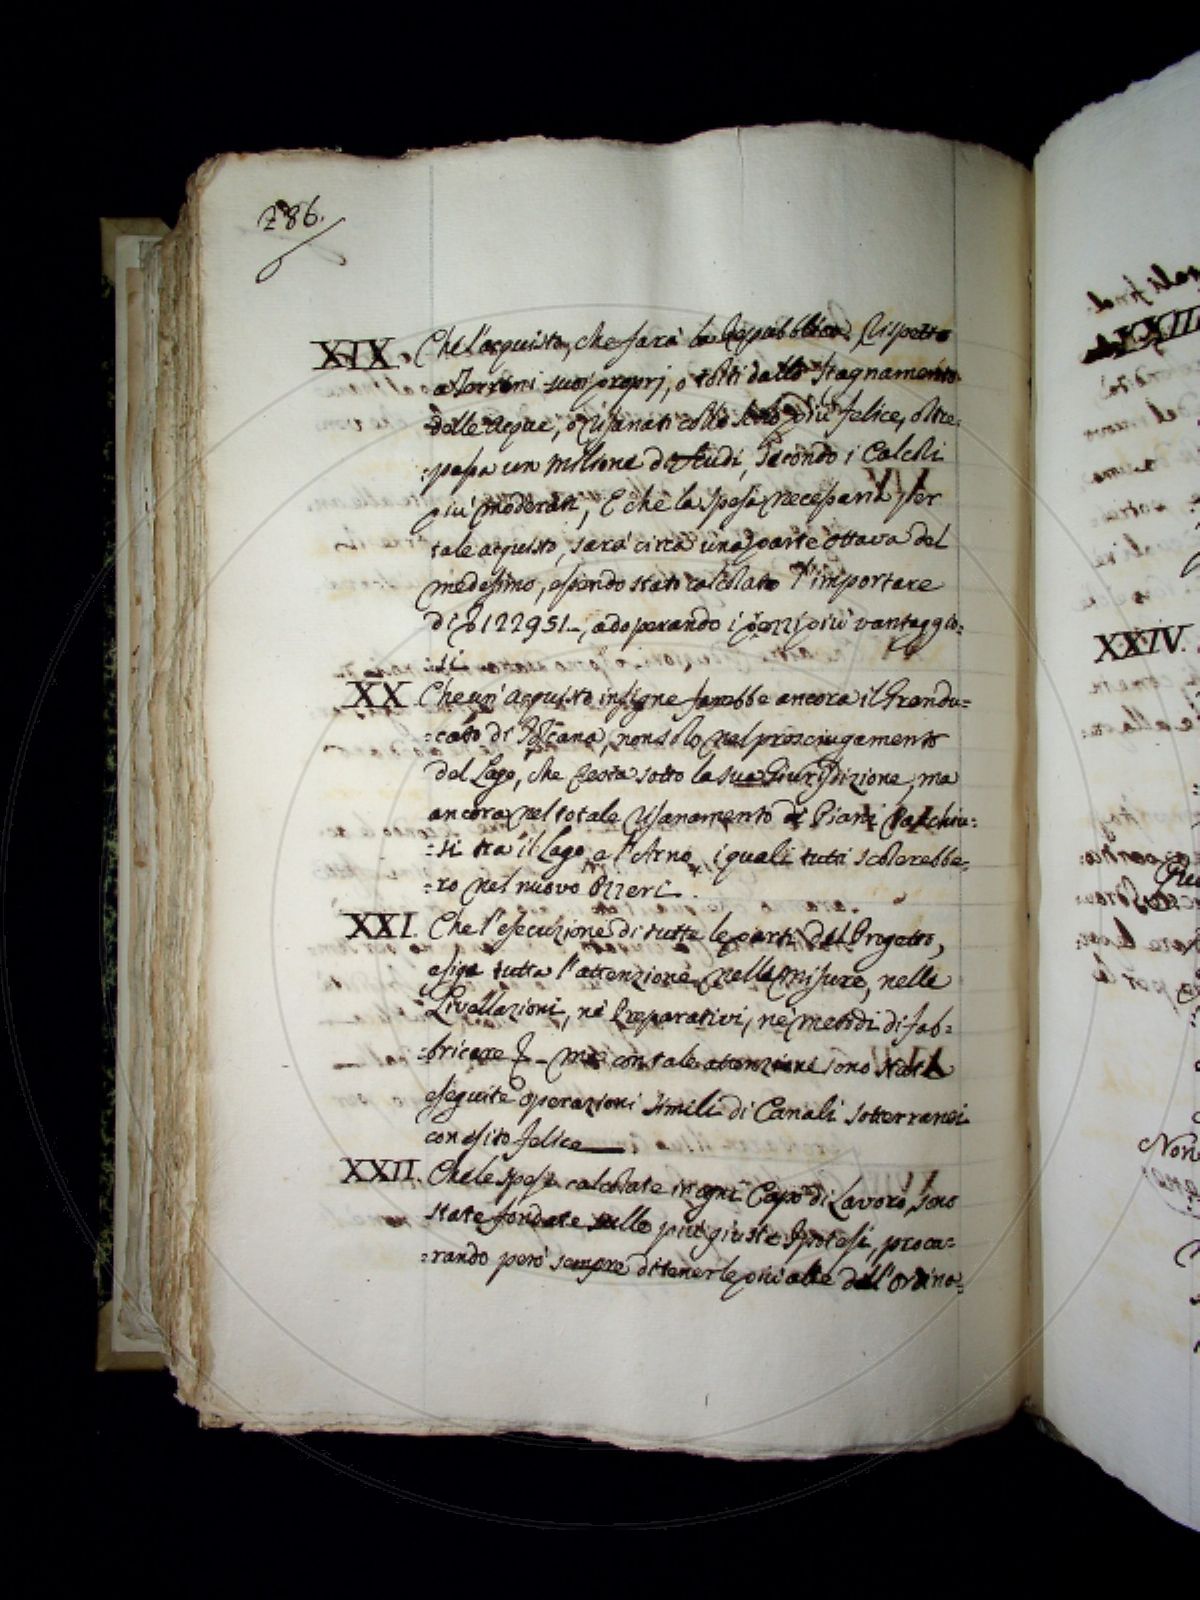 286.
XIX. Che l'acquisto, che farà la Repubblica rispetto
a Terreni suoi proprj, o tolti dallo Stagnamento
delle acque, o risanati collo scolo più felice, oltre-
:passa un milione di scudi, secondo i Calcoli
più moderati, E che la spesa necessaria per
tale acquisto, sarà circa una parte ottava del
medesimo, essendo stato calcolato l'importare
di 122951_, adoperando i prezzi più vantaggio-
:si
XX Che un' acquisto insigne farebbe ancora il Grandu=
:cato di Toscana, non solo nel prosciugamento
del Lago, che resta sotto la sua Giurisdizione, ma
ancora nel totale risanamento di Piani racchiu=
:si tra il Lago e l'Arno, i quali tutti scolerebbe=
:ro nel nuovo Ozzeri.
XXI. Che l'esecuzione di tutte le parti del Progetto,
esige tutta l'attenzione nelle misure, nelle
Livellazioni, ne' Preparativi, ne' metodi di fab=
:bricare con tale attenzione sono state
eseguite operazioni simili di Canali sotterranei
con esito felice
XXII. Che le spese calcolate in ogni Capo di Lavoro, sono
state fondate sulle più giuste Ipotesi, procu=
:rando però sempre di tenerle più alte dell'ordina=
XXIV.
Non